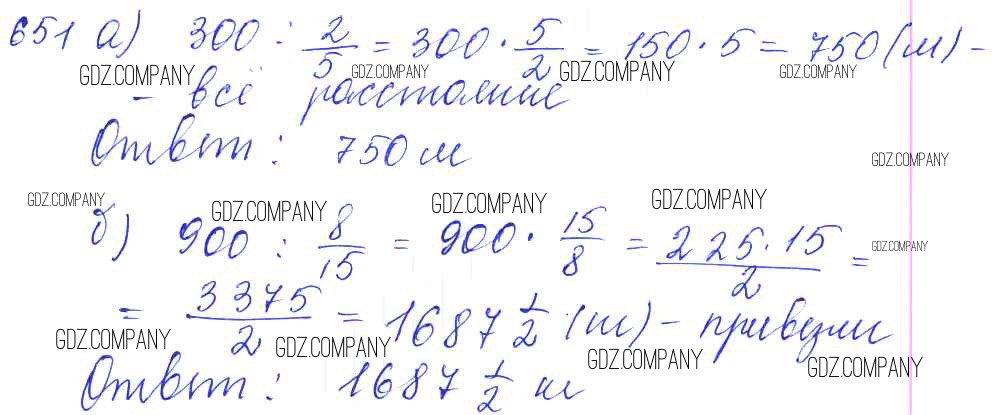 651 а) 300 : 2/5 = 300 · 5/2 = 150 · 5 = 750 (м) -
GDZ.COMPANY GDZ.COMPANY GDZ.COMPANY GDZ.COMPANY
- всё расстояние
Ответ: 750 м
GDZ.COMPANY
GDZ.COMPANY GDZ.COMPANY GDZ.COMPANY GDZ.COMPANY
б) 900 : 8/15 = 900 · 15/8 = 225·15/2 =
GDZ.COMPANY
= 3375/2 = 1687 1/2 (м) - привезли
GDZ.COMPANY GDZ.COMPANY GDZ.COMPANY GDZ.COMPANY
Ответ: 1687 1/2 м